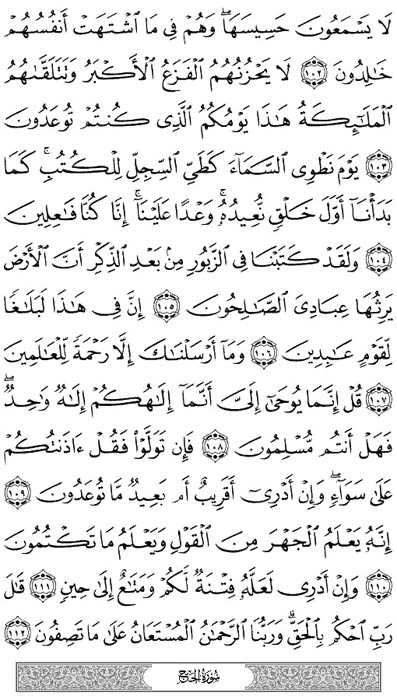 لَا يَسْمَعُونَ حَسِيسَهَا ۖ وَهُمْ فِي مَا ٱشْتَهَتْ أَنفُسُهُمْ
خَٰلِدُونَ ١٠٢ لَا يَحْزُنُهُمُ ٱلْفَزَعُ ٱلْأَكْبَرُ وَتَتَلَقَّىٰهُمُ
ٱلْمَلَٰٓئِكَةُ هَٰذَا يَوْمُكُمُ ٱلَّذِي كُنتُمْ تُوعَدُونَ
١٠٣ يَوْمَ نَطْوِي ٱلسَّمَآءَ كَطَيِّ ٱلسِّجِلِّ لِلْكُتُبِ ۚ كَمَا
بَدَأْنَآ أَوَّلَ خَلْقٍ نُّعِيدُهُۥ ۚ وَعْدًا عَلَيْنَآ ۚ إِنَّا كُنَّا فَٰعِلِينَ
١٠٤ وَلَقَدْ كَتَبْنَا فِي ٱلزَّبُورِ مِنۢ بَعْدِ ٱلذِّكْرِ أَنَّ ٱلْأَرْضَ
يَرِثُهَا عِبَادِيَ ٱلصَّٰلِحُونَ ١٠٥ إِنَّ فِي هَٰذَا لَبَلَٰغًا
لِّقَوْمٍ عَٰبِدِينَ ١٠٦ وَمَآ أَرْسَلْنَٰكَ إِلَّا رَحْمَةً لِّلْعَٰلَمِينَ
١٠٧ قُلْ إِنَّمَا يُوحَىٰٓ إِلَيَّ أَنَّمَآ إِلَٰهُكُمْ إِلَٰهٌ وَٰحِدٌ ۖ
فَهَلْ أَنتُم مُّسْلِمُونَ ١٠٨ فَإِن تَوَلَّوْا۟ فَقُلْ ءَاذَنتُكُمْ
عَلَىٰ سَوَآءٍ ۖ وَإِنْ أَدْرِيٓ أَقَرِيبٌ أَم بَعِيدٌ مَّا تُوعَدُونَ ١٠٩
إِنَّهُۥ يَعْلَمُ ٱلْجَهْرَ مِنَ ٱلْقَوْلِ وَيَعْلَمُ مَا تَكْتُمُونَ
١١٠ وَإِنْ أَدْرِي لَعَلَّهُۥ فِتْنَةٌ لَّكُمْ وَمَتَٰعٌ إِلَىٰ حِينٍ ١١١ قَٰلَ
رَبِّ ٱحْكُم بِٱلْحَقِّ ۗ وَرَبُّنَا ٱلرَّحْمَٰنُ ٱلْمُسْتَعَانُ عَلَىٰ مَا تَصِفُونَ ١١٢
سُورَةُ الحَجِّ